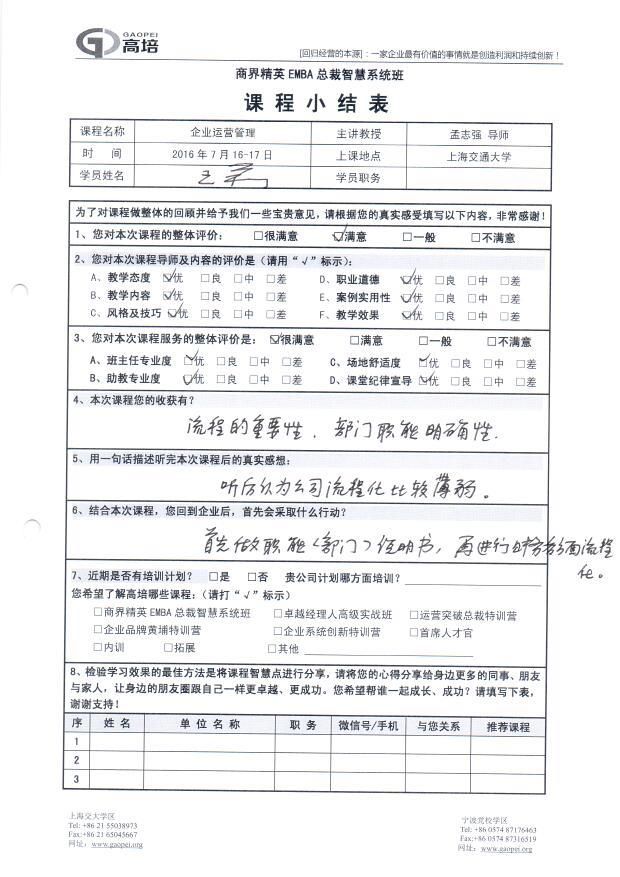 GAOPEI
高培
[回归经营的本源]：一家企业最有价值的事情就是创造利润和持续创新！
商界精英 EMBA 总裁智慧系统班
课 程 小 结 表
课程名称 企业运营管理 主讲教授 孟志强 导师
时 间 2016 年 7 月 16-17 日 上课地点 上海交通大学
学员姓名 王 学员职务
为了对课程做整体的回顾并给予我们一些宝贵意见，请根据您的真实感受填写以下内容，非常感谢！
1、您对本次课程的整体评价： □很满意 ☑满意 □一般 □不满意
2、您对本次课程导师及内容的评价是（请用“√”标示）：
A、教学态度 ☑优 □良 □中 □差 D、职业道德 ☑优 □良 □中 □差
B、教学内容 ☑优 □良 □中 □差 E、案例实用性 ☑优 □良 □中 □差
C、风格及技巧 ☑优 □良 □中 □差 F、教学效果 ☑优 □良 □中 □差
3、您对本次课程服务的整体评价是： ☑很满意 □满意 □一般 □不满意
A、班主任专业度 ☑优 □良 □中 □差 C、场地舒适度 ☑优 □良 □中 □差
B、助教专业度 ☑优 □良 □中 □差 D、课堂纪律宣导 ☑优 □良 □中 □差
4、本次课程您的收获有？
流程的重要性．部门职能明确性．
5、用一句话描述听完本次课程后的真实感想：
听后认为公司流程化比较薄弱。
6、结合本次课程，您回到企业后，首先会采取什么行动？
首先做职能（部门）说明书，再进行财务方面流程
化。
7、近期是否有培训计划？ □是 □否 贵公司计划哪方面培训？
您希望了解高培哪些课程：（请打“√”标示）
□商界精英 EMBA 总裁智慧系统班 □卓越经理人高级实战班 □运营突破总裁特训营
□企业品牌黄埔特训营 □企业系统创新特训营 □首席人才官
□内训 □拓展 □其他
8、检验学习效果的最佳方法是将课程智慧点进行分享，请将您的心得分享给身边更多的同事、朋友
与家人，让身边的朋友圈跟自己一样更卓越、更成功。您希望帮谁一起成长、成功？请填写下表，
谢谢支持！
序 姓 名 单 位 名 称 职 务 微信号/手机 与您关系 推荐课程
1
2
3
上海交大学区 宁波党校学区
Tel: +86 21 55038973 Tel: +86 0574 87176463
Fax:+86 21 65045667 Fax:+86 0574 87316519
网址：www.gaopei.org 网址：www.gaopei.org